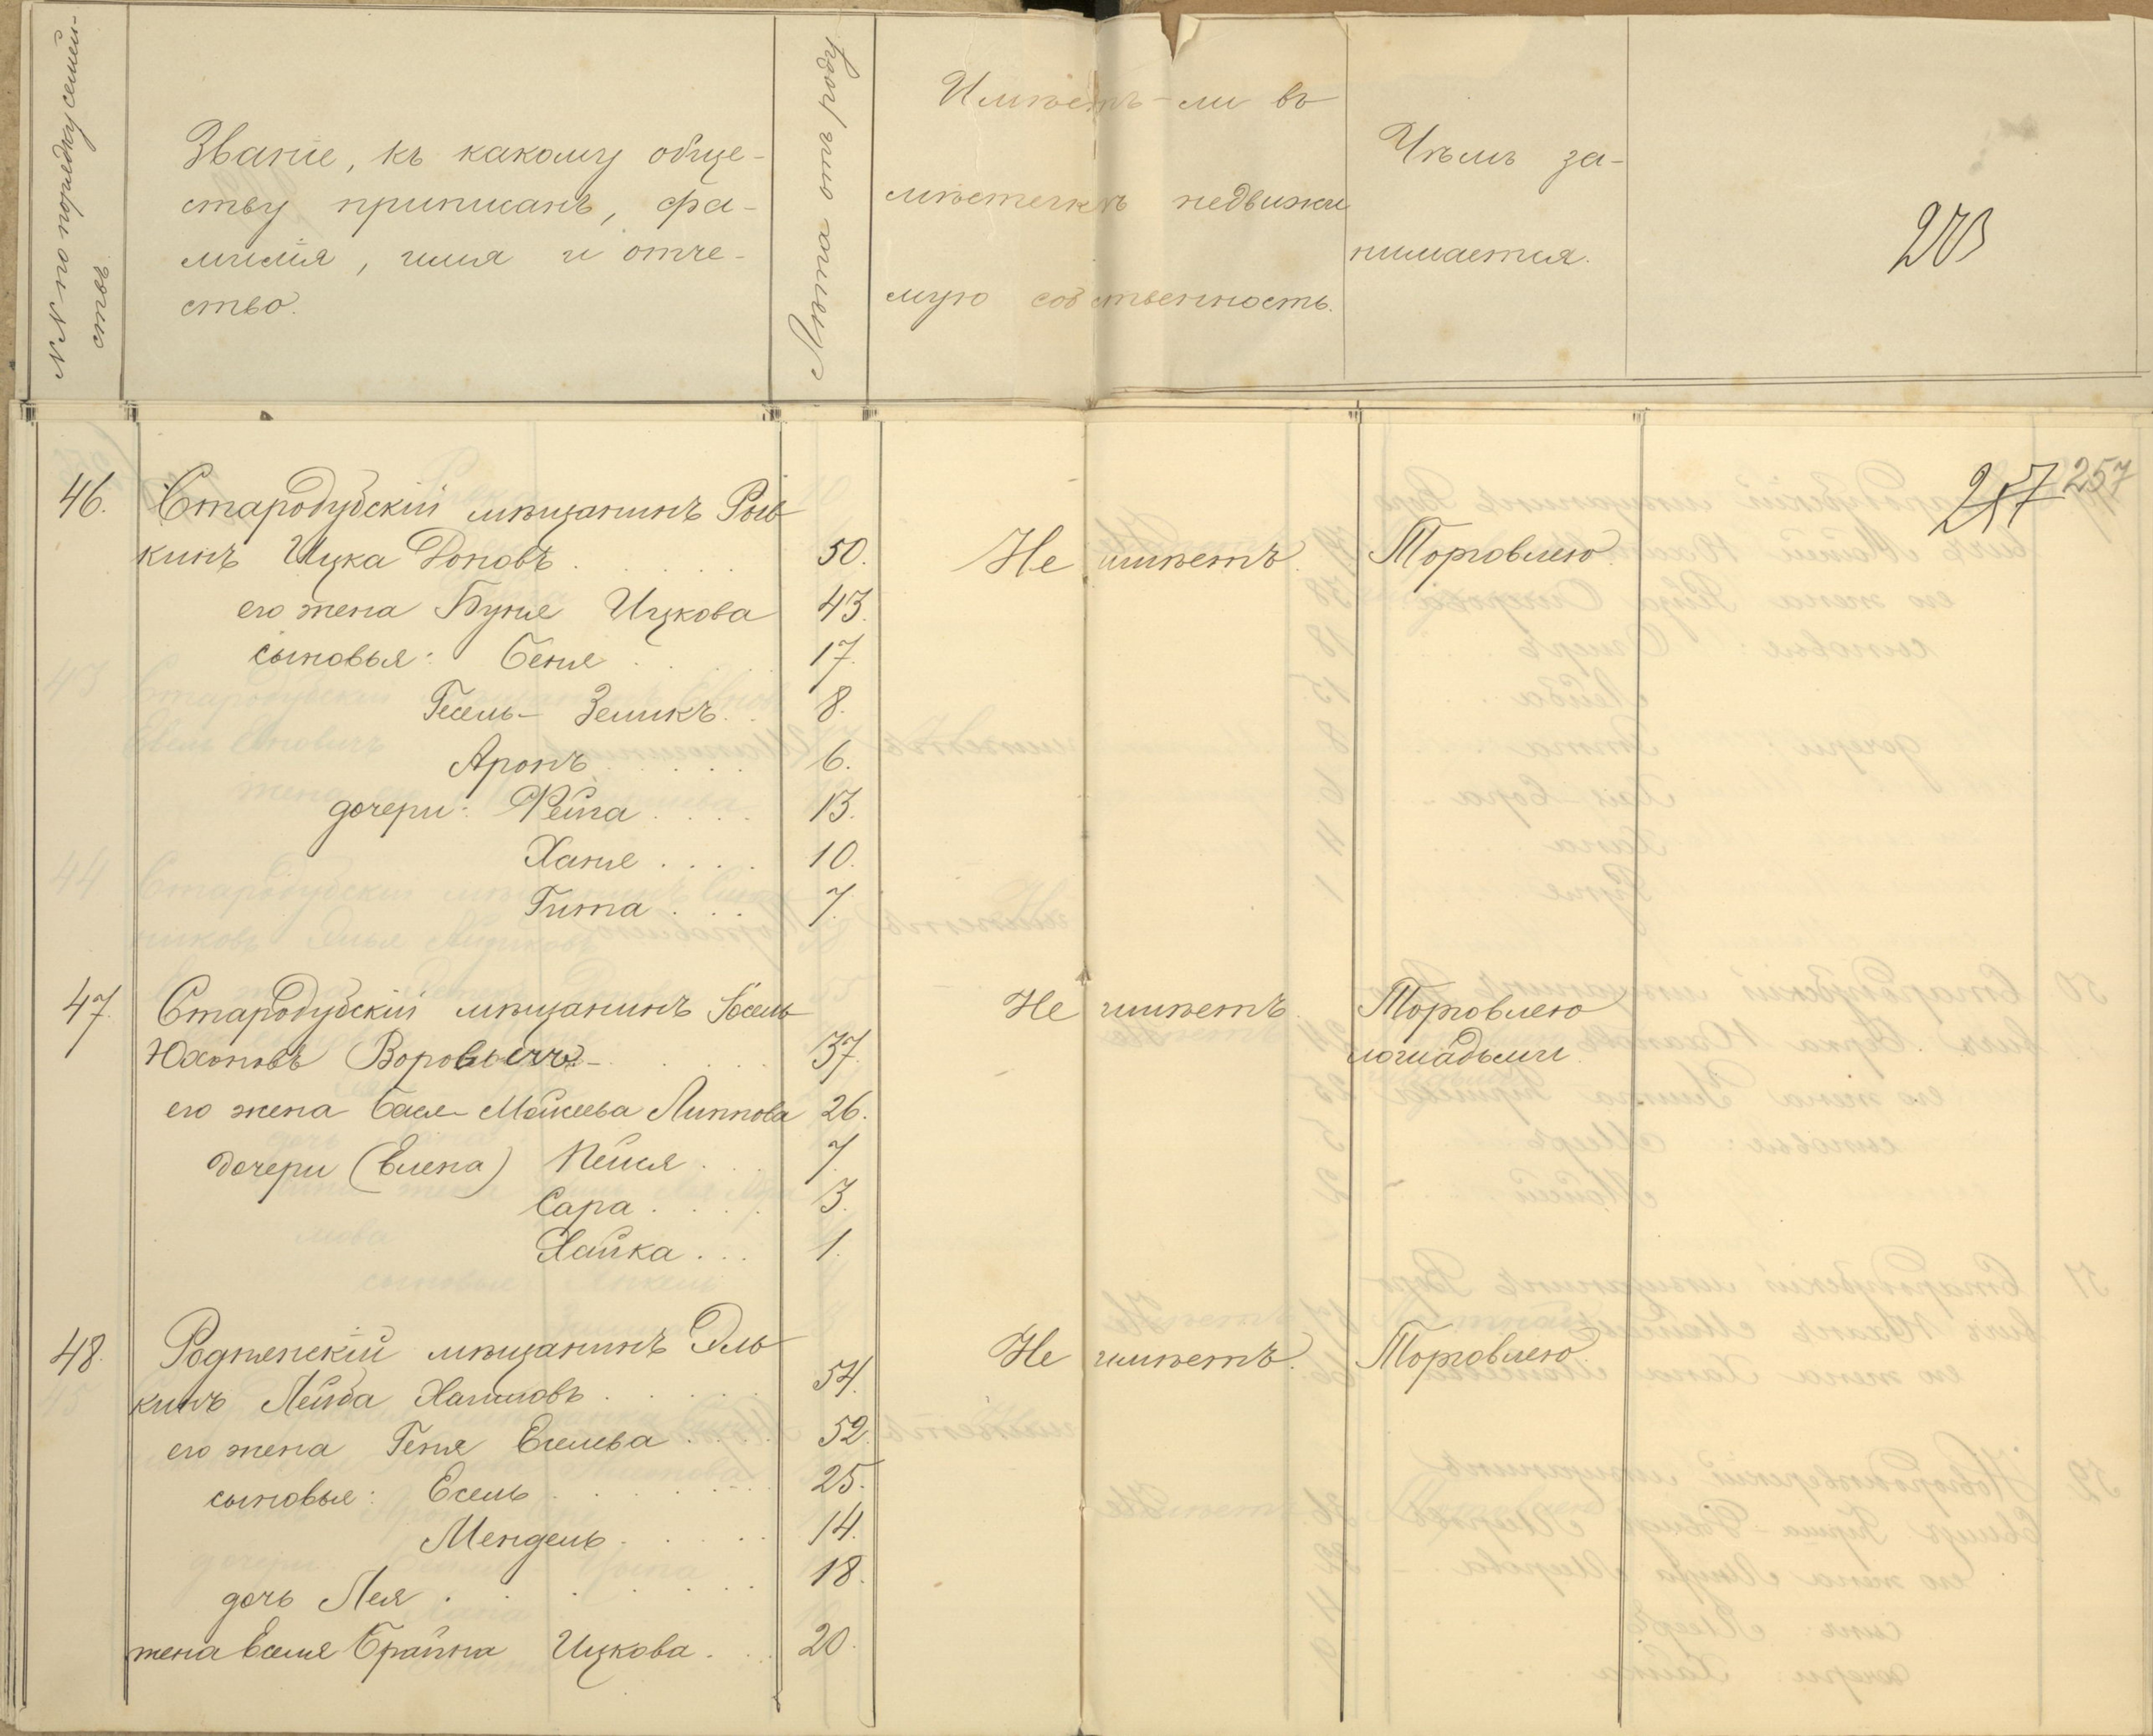 №№ по порядку семей-
ствъ
Званіе, къ какому обще-
ству приписанъ, фа-
милія, имя и отче-
ство.
Сколько отъ роду
Имѣетъ-ли въ
мѣстечкѣ недвижи
мую собственность.
Чѣмъ за-
нимается.
203
257 257
46. Стародубскій мѣщанинъ Рыв
кинъ Ицка Доновъ 50. Не имѣетъ. Торговлею.
его жена Буня Ицкова 43.
сыновья: Беня 17.
Гесель-Зеликъ 8.
Аронъ 6.
дочери: Фейга 13.
Ханя 10.
Гита 7.
47. Стародубскій мѣщанинъ Іосель
Юхоновъ Воровичъ 37. Не имѣетъ. Торговлею
лошадьми.
его жена Бася Мойсеева Липпова 26.
дочери (Елена) Пейся 7.
Сара 3.
Хайка 1.
48. Роднянскій мѣщанинъ Эль
кинъ Лейба Хаимовъ 54. Не имѣетъ. Торговлею.
его жена Геня Еселева 52.
сыновья: Есель 25.
Мендель 14.
дочь Лея 18.
жена Еселя Брайна Ицкова 20.